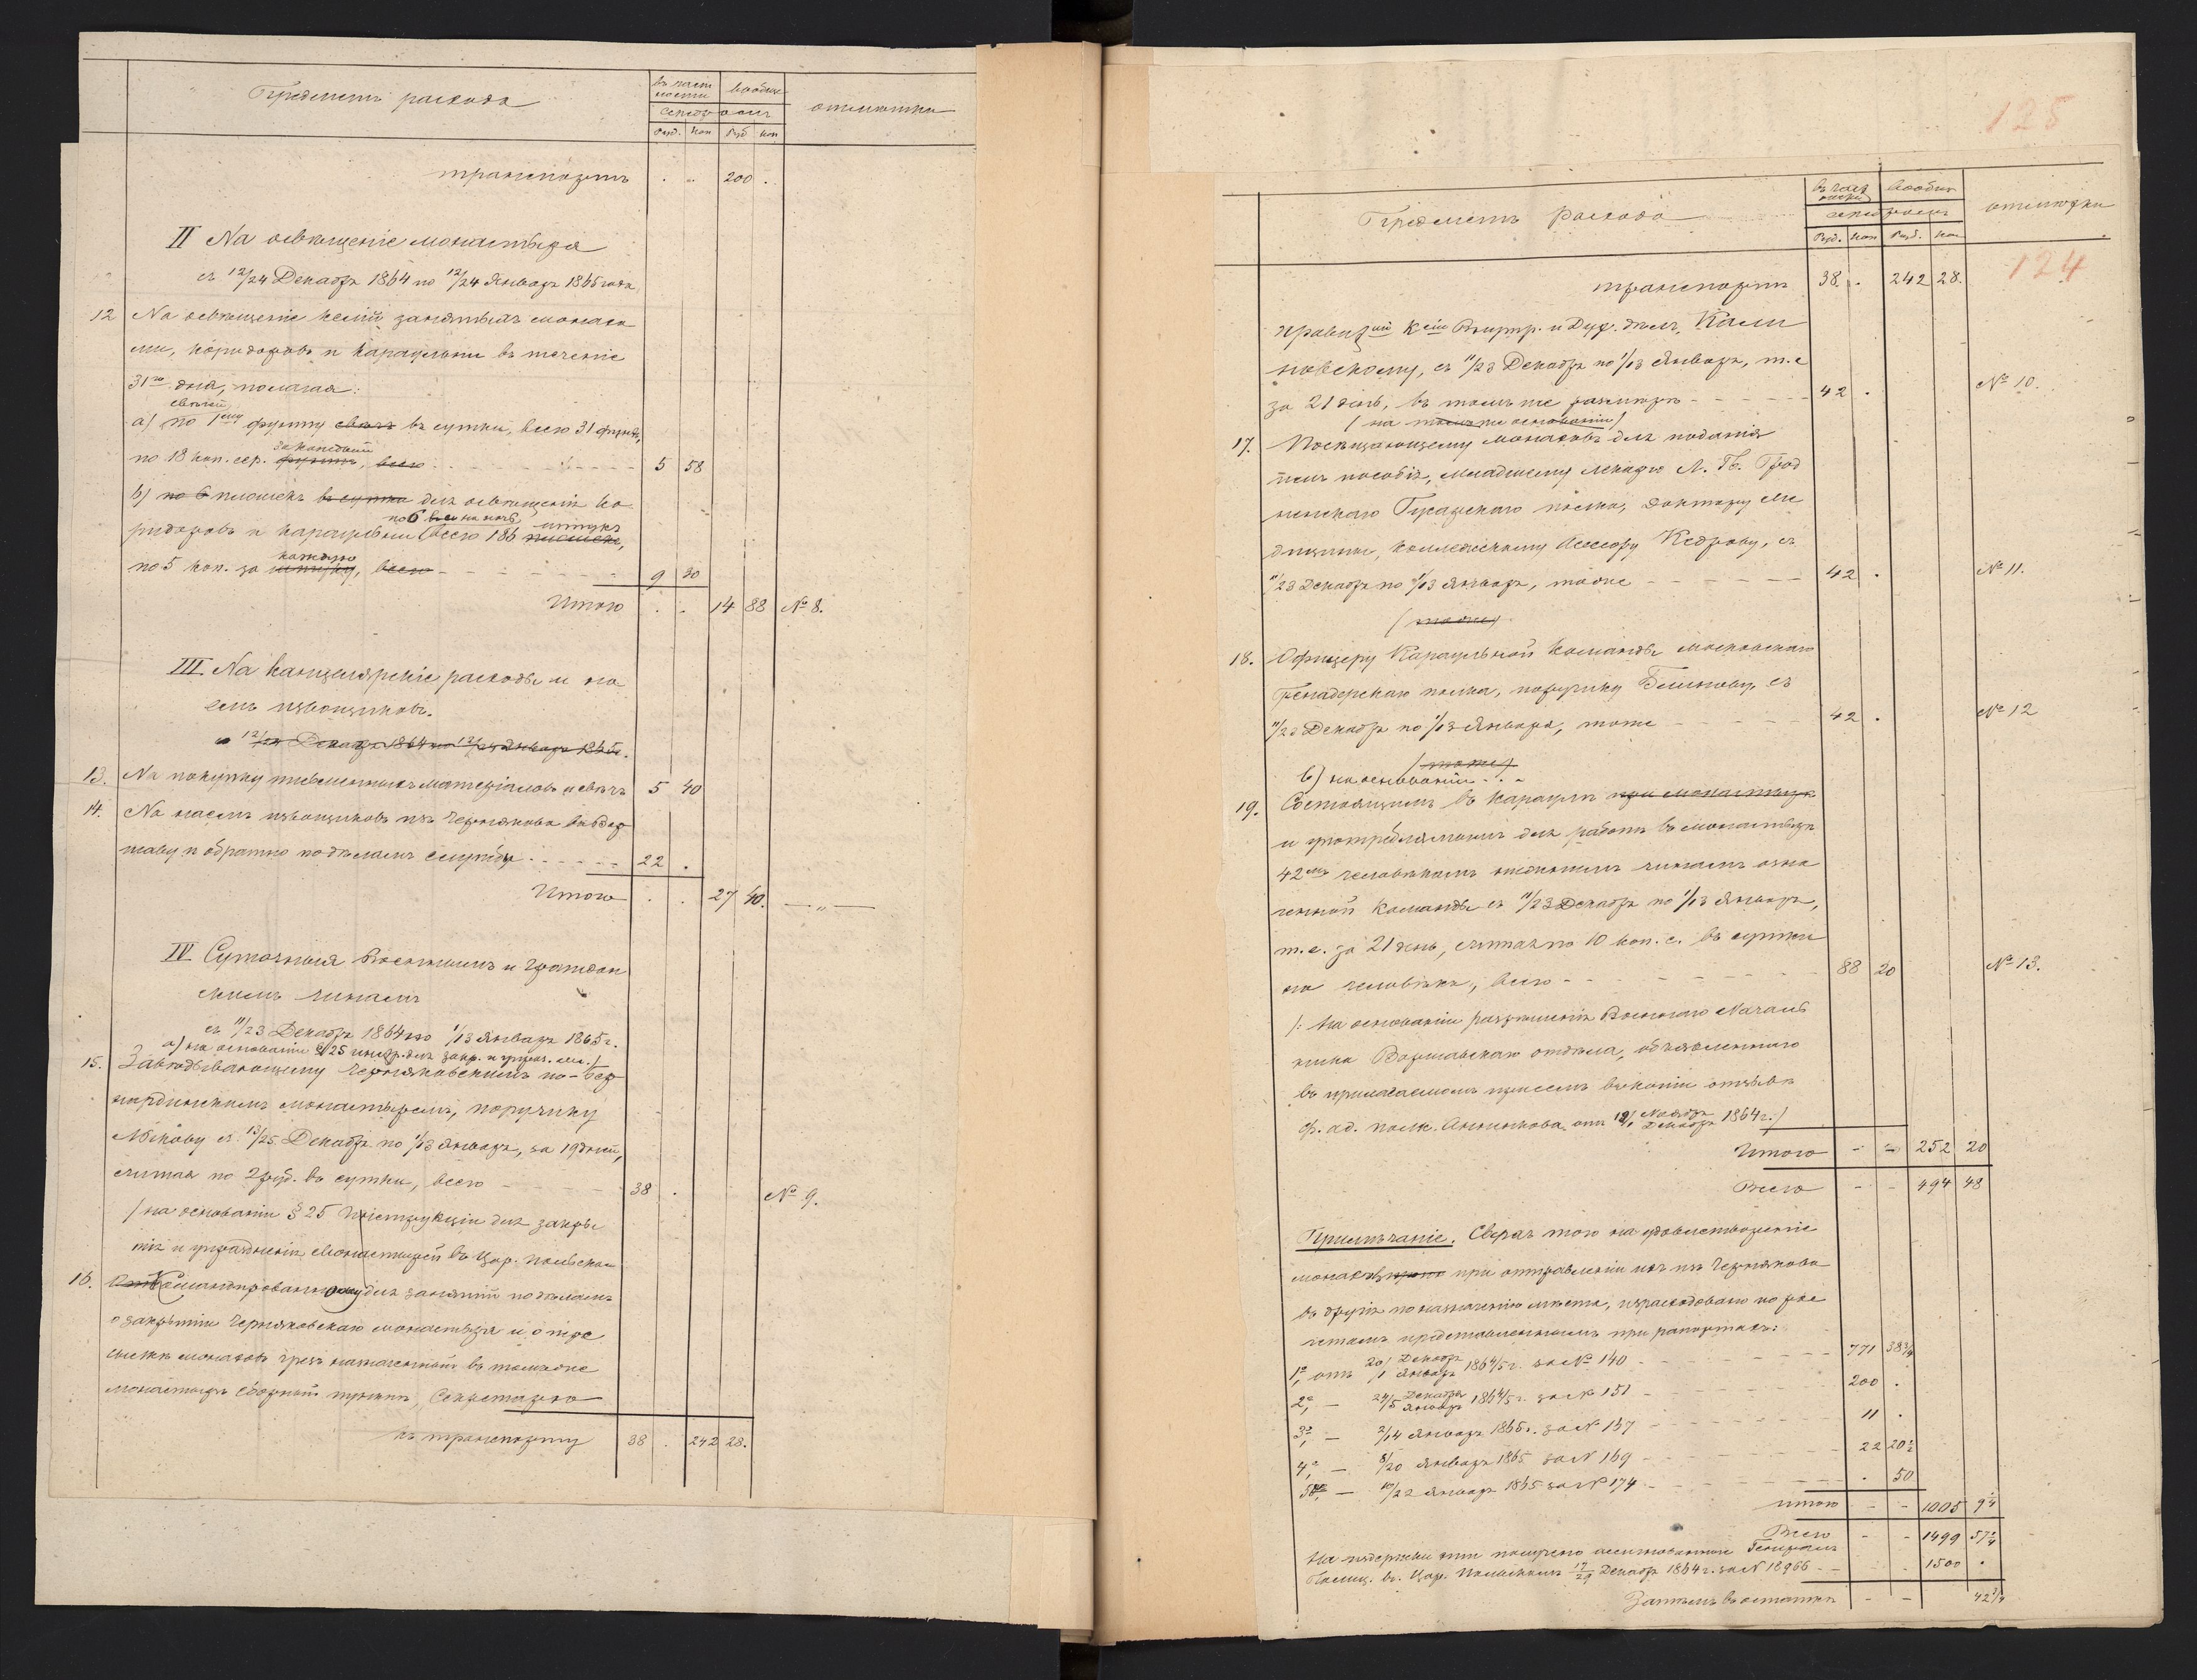 Предметъ расхода
въ част
ности
вообще
серебромъ
Руб. Коп Руб Коп
отметки
транспортъ . „ 200 .
II На освѣщеніе монастыря
съ 12/24 Декабря 1864 по 12/24 Января 1865 года
12 На освѣщеніе келій занятыхъ монаха
ми, коридоровъ и караульни въ теченіе
31го дня, полагая:
свѣчей
а) по 1му фунту свѣчъ въ сутки, всего 31 фунтъ,
за каждый
по 18 коп. сер. фунтъ, всего 5 58
b) по 6 плошекъ въ сутки для освѣщенія ко
по 6 на ночь штукъ
ридоровъ и караульни (всего 186 плошекъ,
каждую
по 5 коп. за штуку, всего 9 30
Итого . . 14 88 № 8.
III На канцелярскіе расходы и на
емъ извощиковъ.
съ 12/24 Декабря 1864 по 12/24 Января 1865.
13. На покупку письменныхъ матеріаловъ и свѣчъ 5 40
14. На наемъ извощиковъ изъ Чернякова въ Вар
шаву и обратно по дѣламъ службы 22 .
Итого . . 27 40. — „ —
IV Суточныя Военнымъ и Граждан
скимъ чинамъ
съ 11/23 Декабря 1864 по 1/13 Января 1865 г.
а) на основаніи § 25 инстр. для закр. и упразд. мон.)
15. Завѣдывающему Черняковскимъ по-Бер
нардинскимъ монастыремъ, поручику
съ 13/25 Декабря по 1/13 Января, за 19 дней,
считая по 2 руб. въ сутки, всего 38 . № 9.
/ на основаніи § 25 Инструкціи для закры
тія и упраздненія Монастырей въ Цар. Польскомъ
16. Откомандированному для занятій по дѣламъ
о закрытіи Черняковскаго монастыря и о пере
сылкѣ монаховъ чрезъ назначенный въ томъ же
монастырѣ сборный пунктъ, Секретарю
къ транспорту 38 . 242 28.
125
Предметъ расхода
въ част
ности
вообще
серебромъ
Руб. Коп Руб. Коп
отметки
124
транспортъ 38. . 242 28.
Кали
новскому, съ 11/23 Декабря по 1/13 Января, т. е
за 21 день, въ томъ же размѣрѣ 42 . № 10.
/ на томъ же основаніи /
17. Посѣщающему монаховъ для поданія
имъ пособія, младшему лекарю Л. Гв. Грод
ненскаго Гусарскаго полка, доктору ме
дицины, коллежскому Асессору Кедрову, съ
11/23 Декабря по 1/13 Января, тоже 42 . № 11.
/ тоже /
18. Офицеру Караульной команды Московскаго
Гренадерскаго полка, поручику съ
11/23 Декабря по 1/13 Января, тоже 42 . № 12
/ тоже /
б) на основаніи . . .
19. Состоящимъ въ караулѣ при монастырѣ
и употребляемымъ для работъ въ монастырѣ
42мъ человѣкамъ нижнимъ чинамъ озна
ченной команды съ 11/23 Декабря по 1/13 Января,
т. е. за 21 день, считая по 10 коп. с. въ сутки
на человѣка, всего 88 20 № 13.
/: На основаніи разрѣшенія Военнаго Началь
ника Варшавскаго отдѣла, объявленнаго
въ прилагаемомъ при семъ въ копіи отзывѣ
ф. ад. полк. Анненкова отъ 19/1 Ноября/Декабря 1864 г. /
Итого - - 252 20
Всего - - 494 48
Примѣчаніе. Сверхъ того на удовлетвореніе
монаховъ при отправленіи ихъ изъ Чернякова
въ другія по назначенію мѣста, израсходовано по рас
четамъ представленнымъ при рапортахъ:
1е, отъ 20/1 Декабря/Января 1864/5 г. за № 140 771 38 3/4
2е, — 24/5 Декабря/Января 1864/5 г. за № 151 200 .
3е, — 2/14 Января 1865 г. за № 157 11 .
4е, — 8/20 Января 1865 за № 169 22 20 1/2
5е, — 10/22 Января 1865 за № 174 . 50
итого - - 1005 9 1/4
Всего - - 1499 57 1/4
На издержки эти получено ассигнованныхъ Генералъ
Полиц. въ Цар. Польскомъ 17/29 Декабря 1864 г. за № 18966 1500 .
Затѣмъ въ остаткѣ - - 42 3/4